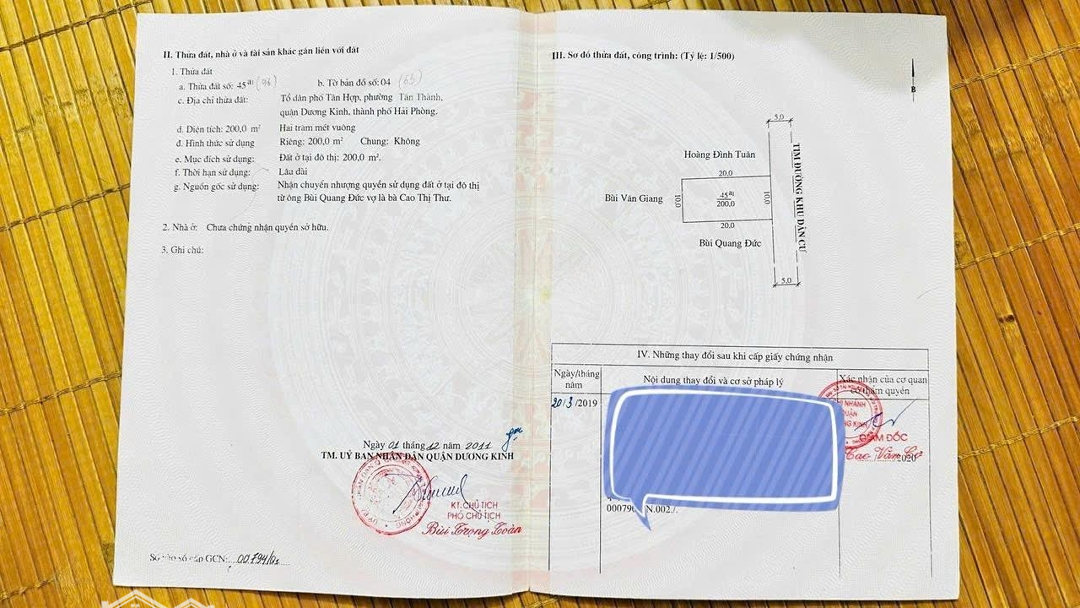 II. Thửa đất, nhà ở và tài sản khác gắn liền với đất
1. Thửa đất
a. Thửa đất số: 45a1 (76) b. Tờ bản đồ số: 04 (65)
c. Địa chỉ thửa đất: Tổ dân phố Tân Hợp, phường Tân Thành,
quận Dương Kinh, thành phố Hải Phòng.
d. Diện tích: 200,0 m² Hai trăm mét vuông
đ. Hình thức sử dụng Riêng: 200,0 m² Chung: Không
e. Mục đích sử dụng: Đất ở tại đô thị: 200,0 m².
f. Thời hạn sử dụng: Lâu dài
g. Nguồn gốc sử dụng: Nhận chuyển nhượng quyền sử dụng đất ở tại đô thị
từ ông Bùi Quang Đức vợ là bà Cao Thị Thư.
2. Nhà ở: Chưa chứng nhận quyền sở hữu.
3. Ghi chú:
Ngày 01 tháng 12 năm 2011
TM. UỶ BAN NHÂN DÂN QUẬN DƯƠNG KINH
KT. CHỦ TỊCH
PHÓ CHỦ TỊCH
Bùi Trọng Toàn
Số vào sổ cấp GCN: 00794/01
III. Sơ đồ thửa đất, công trình: (Tỷ lệ: 1/500)
B
5,0
Hoàng Đình Tuân
20,0
Bùi Văn Giang
10,0
45a1
200,0
10,0
TIM ĐƯỜNG KHU DÂN CƯ
20,0
Bùi Quang Đức
5,0
IV. Những thay đổi sau khi cấp giấy chứng nhận
Ngày/tháng
năm
Nội dung thay đổi và cơ sở pháp lý
Xác nhận của cơ quan
có thẩm quyền
20/3/2019
NHÁNH
QUẬN
KINH
GIÁM ĐỐC
2020
N.002./.